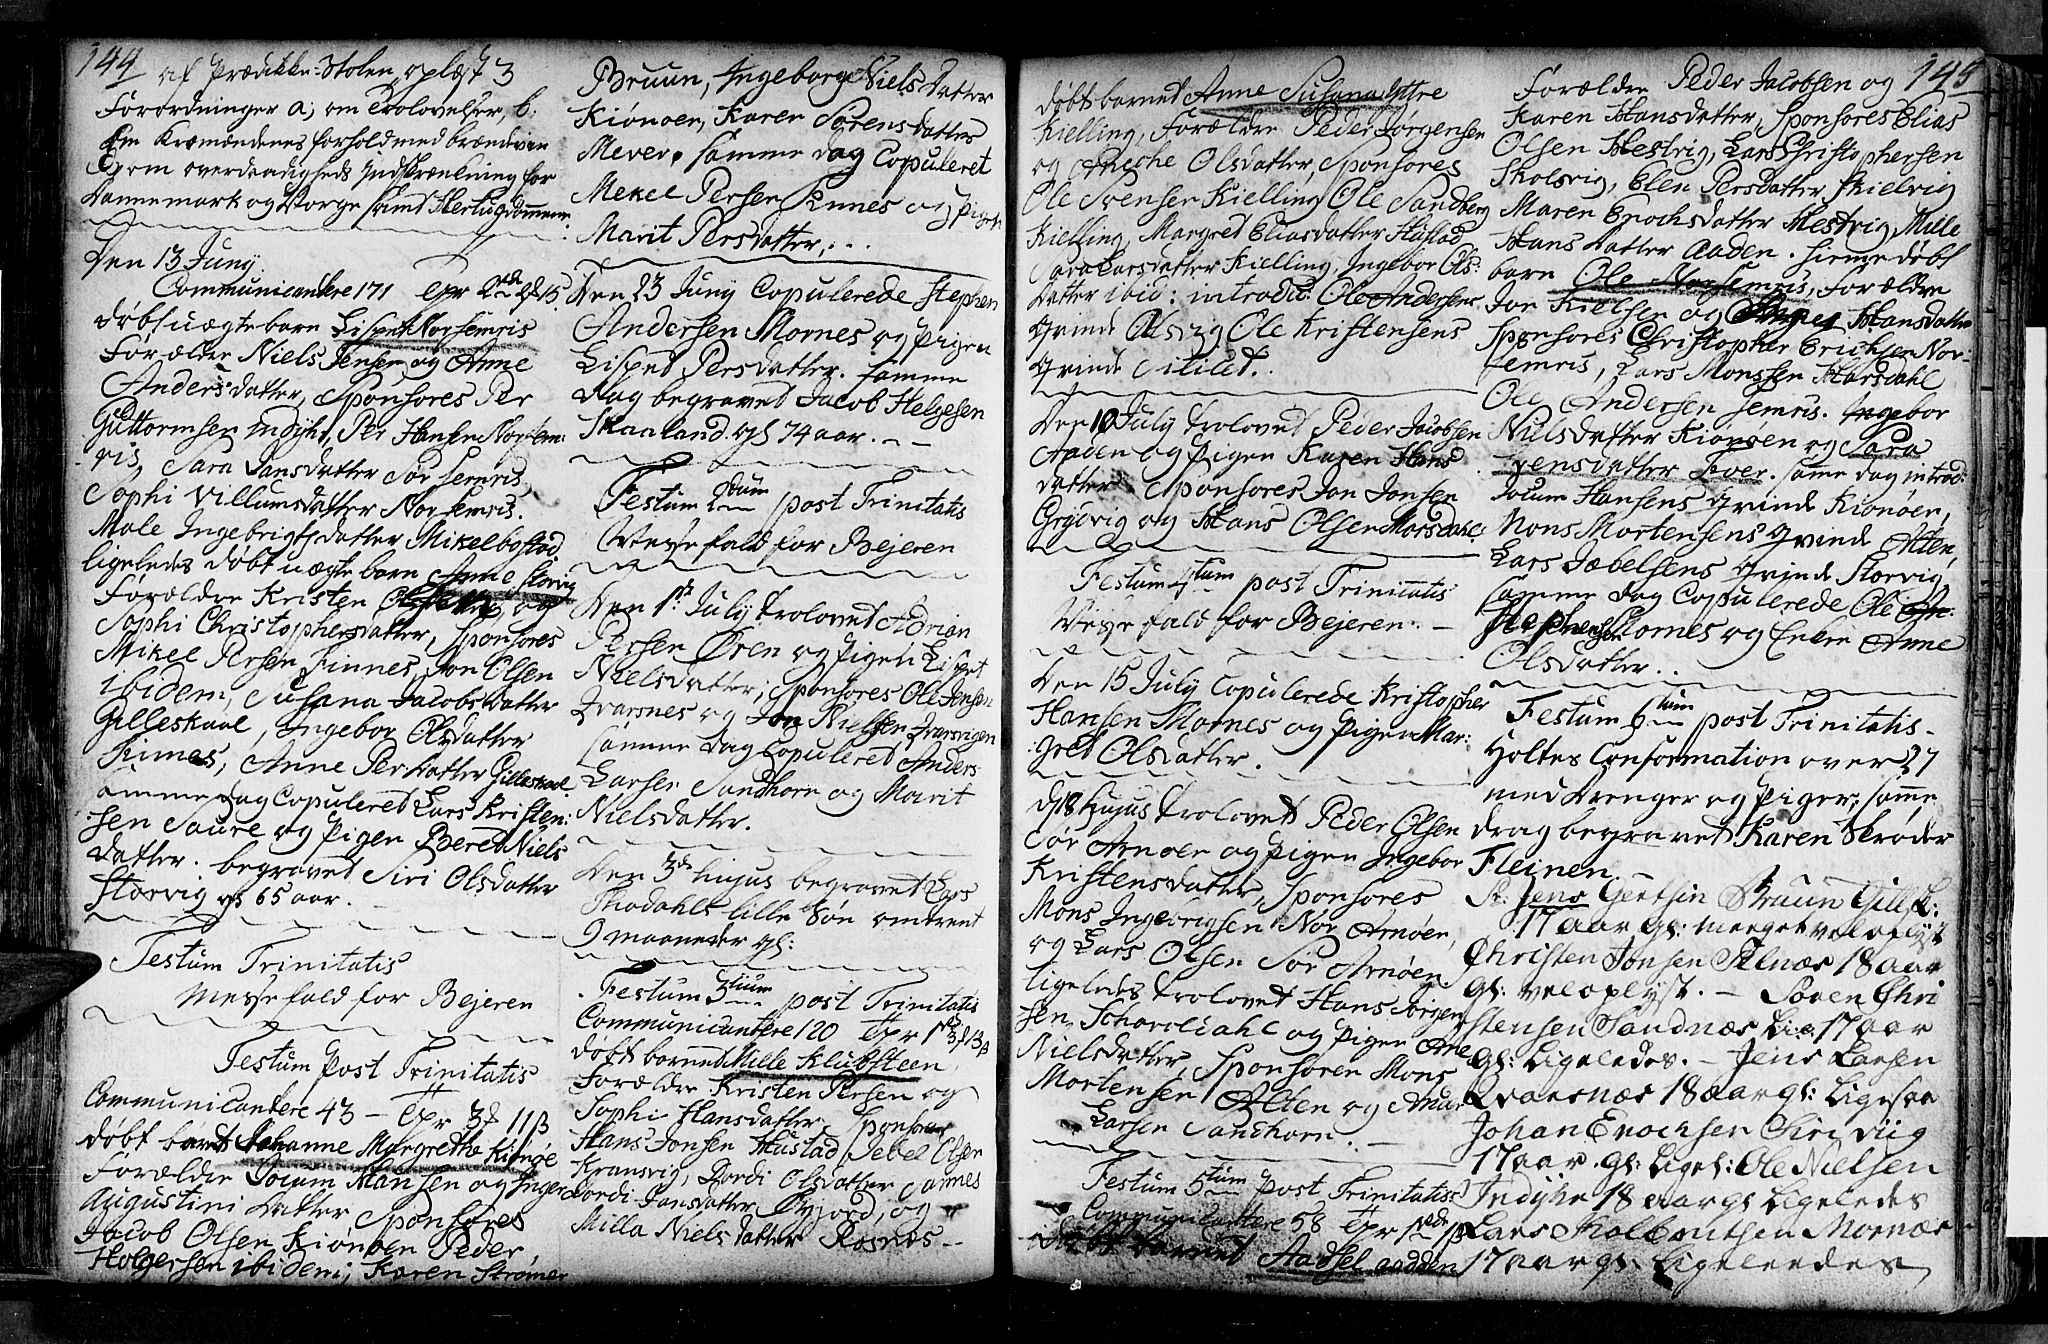 144
af Prædikke-Stolen oplæst 3
Forordninger a; om Trolovelser, b;
om Kræmændenes forhold med brændeviin
C; om overdaadigheds Indskrænkning for
Dannemark og Norge samt Hertugdømmene
Den 13 Juny
Communicantere 171
døbt uægte barn Lispet Norsemris
Forældre Niels Jensen og Anne
Andersdatter, Sponsores Per
Guttormsen Indyhr, Per Hansen Norsem
ris, Sara Jansdatter Sørsemris,
Sophi Villumsdatter Norsemris.
Male Ingebrigtsdatter Mikelbostad
ligeledes døbt uægte barn Anne Storvig
Forældre Kristen og
Sophi Christophersdatter, Sponsores
Mikel Persen Finnes, Jon Olsen
ibidem, Susana Jacobsdatter
Gilleskaal, Ingebor Olsdatter
Finnes, Anne Perdatter Gilleskaal
samme dag Copuleret Lars Kristen:
sen Saure og Pigen Beret Niels
datter. begravet Siri Olsdatter
Storvig gl 65 aar.
Festum Trinitatis
Messefald for Bejeren
Festum Post Trinitatis
Communicantere 43 - Tpr 3 11 β
døbt barnet Johanne Margrethe Kiønøe
Forældre Jocum Hansen og Inger
Augustini Datter Sponsores
Jacob Olsen Kiønøen Peder
Holgersen ibidem; Karen Strømer
Bruun, Ingeborg Nielsdatter
Kiønøen, Karen Sørensdatter
Mever. samme dag Copuleret
Mekel Persen Ennes og Pigen
Marit Persdatter;
Den 23 Juny Copulerede Stephen
Andersen Mornes og Pigen
Lispet Persdatter. samme
Dag begravet Jacob Helgesen
Skaaland gl 74 aar.
Festum 2dum post Trinitatis
Messefald for Bejeren
Den 1st July trolovet Adrian
Persen Øren og Pigen Lispet
Nielsdatter; Sponsores Ole Jensen
Qvarsnes og Jon Nielsen Qvarsvigen
samme dag Copuleret Anders
Larsen Sandhorn og Marit
Nielsdatter.
Den 3d hujus begravet Lars
Thodahls lille søn omtrent
9 maaneder gl:
Festum 3tium post Trinitatis
Communicantere 120 Tpr
døbt barnet Mille Klubsteen
Forældre Kristen Persen og
Sophi Hansdatter, Sponsores
Hans Jonsen Hustad Jebel Olsen
Kransvig, Dordi Olsdatter Sannes
Dordi Jansdatter og
Milla Nielsdatter Rosnes
145
døbt barnet Anne Susana yttre
Kielling, Forældre Peder Jørgensen
og Olsdatter, Sponsores
Ole Svensen Kielling Ole Sandberg
Kielling, Margred Eliasdatter Hustad
Sara Larsdatter Kielling, Ingebor Ols:
datter ibid: introdu: Ole Andersens
Qvinde Olsvig Ole Kristensens
Qvinde
Den 10 July trolovet Peder Jacobsen
Aaden og Pigen Karen Hans
datter Sponsores Jon Jonsen
Grydvig og Hans Olsen Morsdahl
Festum 4tum post Trinitatis
Messefald for Bejeren
Den 15 July Copulerede Kristopher
Hansen Mornes og Pigen Mar:
gret Olsdatter.
d 18 hujus trolovet Peder Olsen
Sør Arnøen og Pigen Ingebor
Kristensdatter, Sponsores
Mons Ingebrigsen Nor Arnøen,
og Lars Olsen Sør Arnøen
ligeledes trolovet Hans Jørgen
sen, og Pigen Ane
Nielsdatter, Sponsoren Mons
Mortensen Alten og
Larsen Sandhorn.
Festum 5tum post Trinitatis
Communicantere 58 Tpr
døbt barnet Aadsel aadden
Forældre Peder Jacobsen og
Karen Hansdatter, Sponsores Elias
Olsen Hestvig, Lars Christophersen
Skolsvig, Elen Persdatter Skielvig
Maren Enochsdatter Hestvig, Mille
Hansdatter Aaden. hieme døbt
barn Ole Norsemris, Forældre
Jon Kielsen og Hansdatter
Sponsores Christopher Erichsen Nor-
semris, Lars Monssen Harsdahl
Ole Andersen semris. Ingebor
Nielsdatter Kiønøen og Sara
Svensdatter Fever. samme dag introd:
Jocum Hansens Qvinde Kiønøen,
Mons Mortensens Qvinde Alten,
Lars Jæbelsens Qvinde Storvig,
samme dag Copulerede Ole
Stephensen Mornes og Enken Anne
Olsdatter.
Festum 6tum post Trinitatis.
Holtes Confirmation over 27
med Drenger og Piger; samme
dag begravet Karen Skrøder
Fleinen.
Sr. Jens Gertsen Bruun Gillesk:
17 aar gl: meget vel oplyst
Christen Jonsen Selnæs 18 aar
gl: vel oplyst. - Søren Chri
stensen Sandnæs Lige 17 aar
gl: Ligeledes. - Jens Larsen
Qvarsnæs 18 aar gl: Ligesaa
Johan Enochsen Sirviig
17 aar. gl: Ligel: Ole Nielsen
Indyhr 18 aar gl Ligeledes
Lars Kolbentsen Mornæs
17 aar gl: Ligeledes